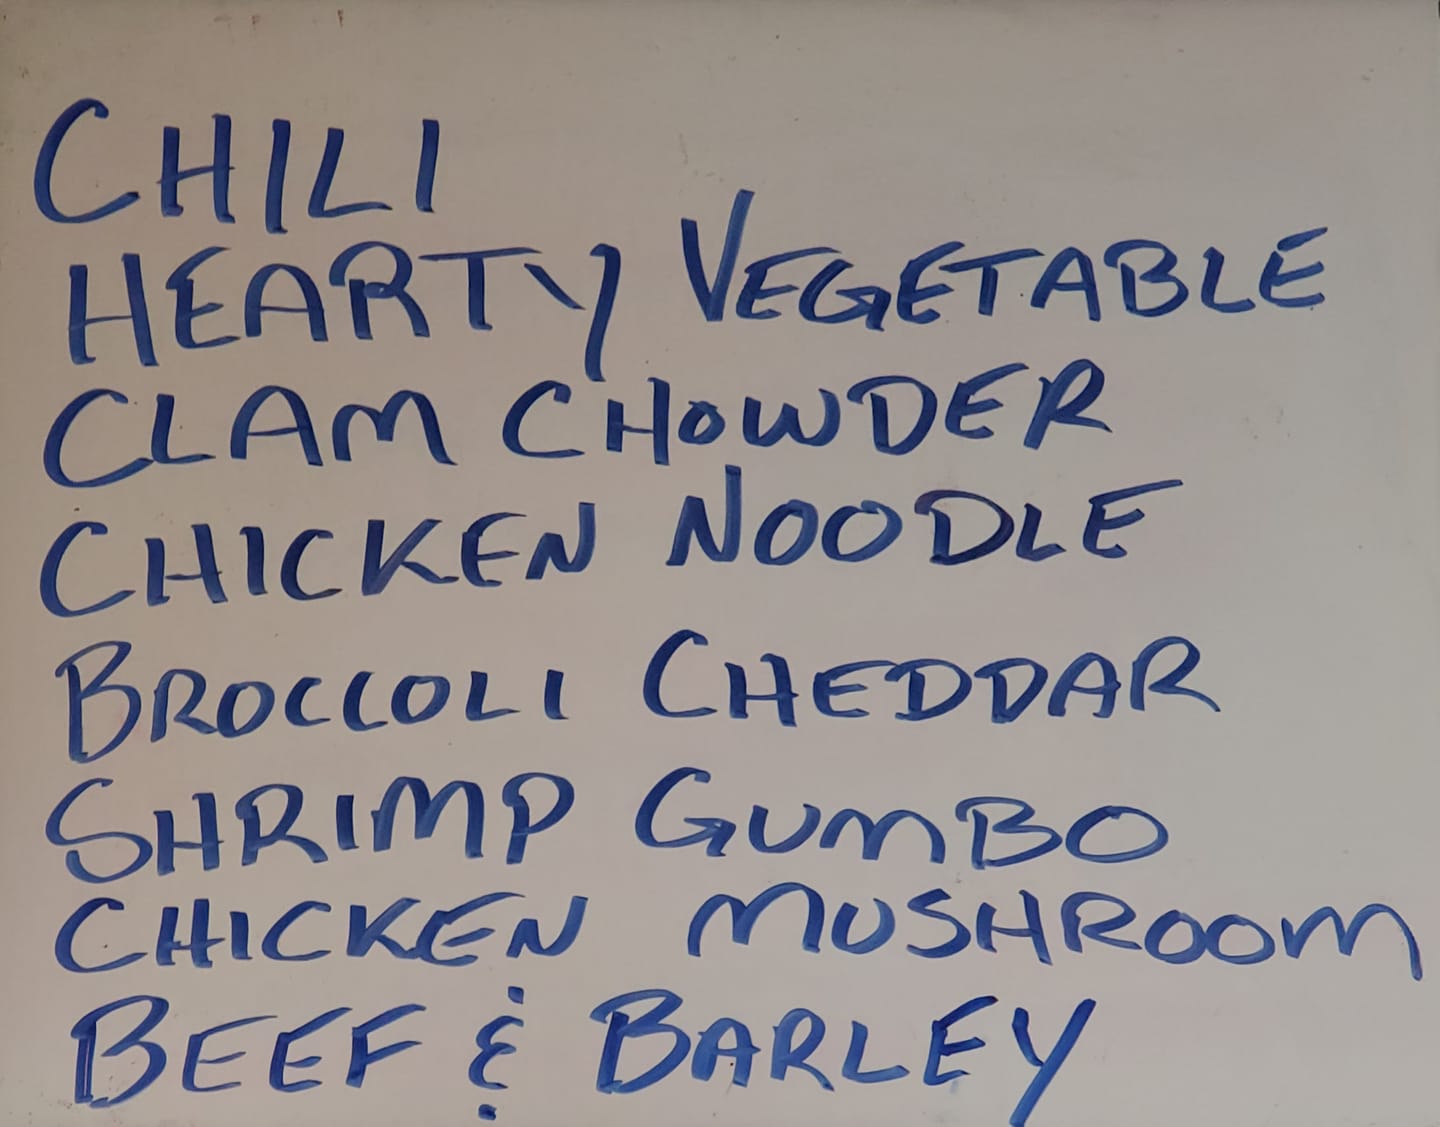 CHILI
HEARTY VEGETABLE
CLAM CHOWDER
CHICKEN NOODLE
BROCCOLI CHEDDAR
SHRIMP GUMBO
CHICKEN MUSHROOM
BEEF & BARLEY